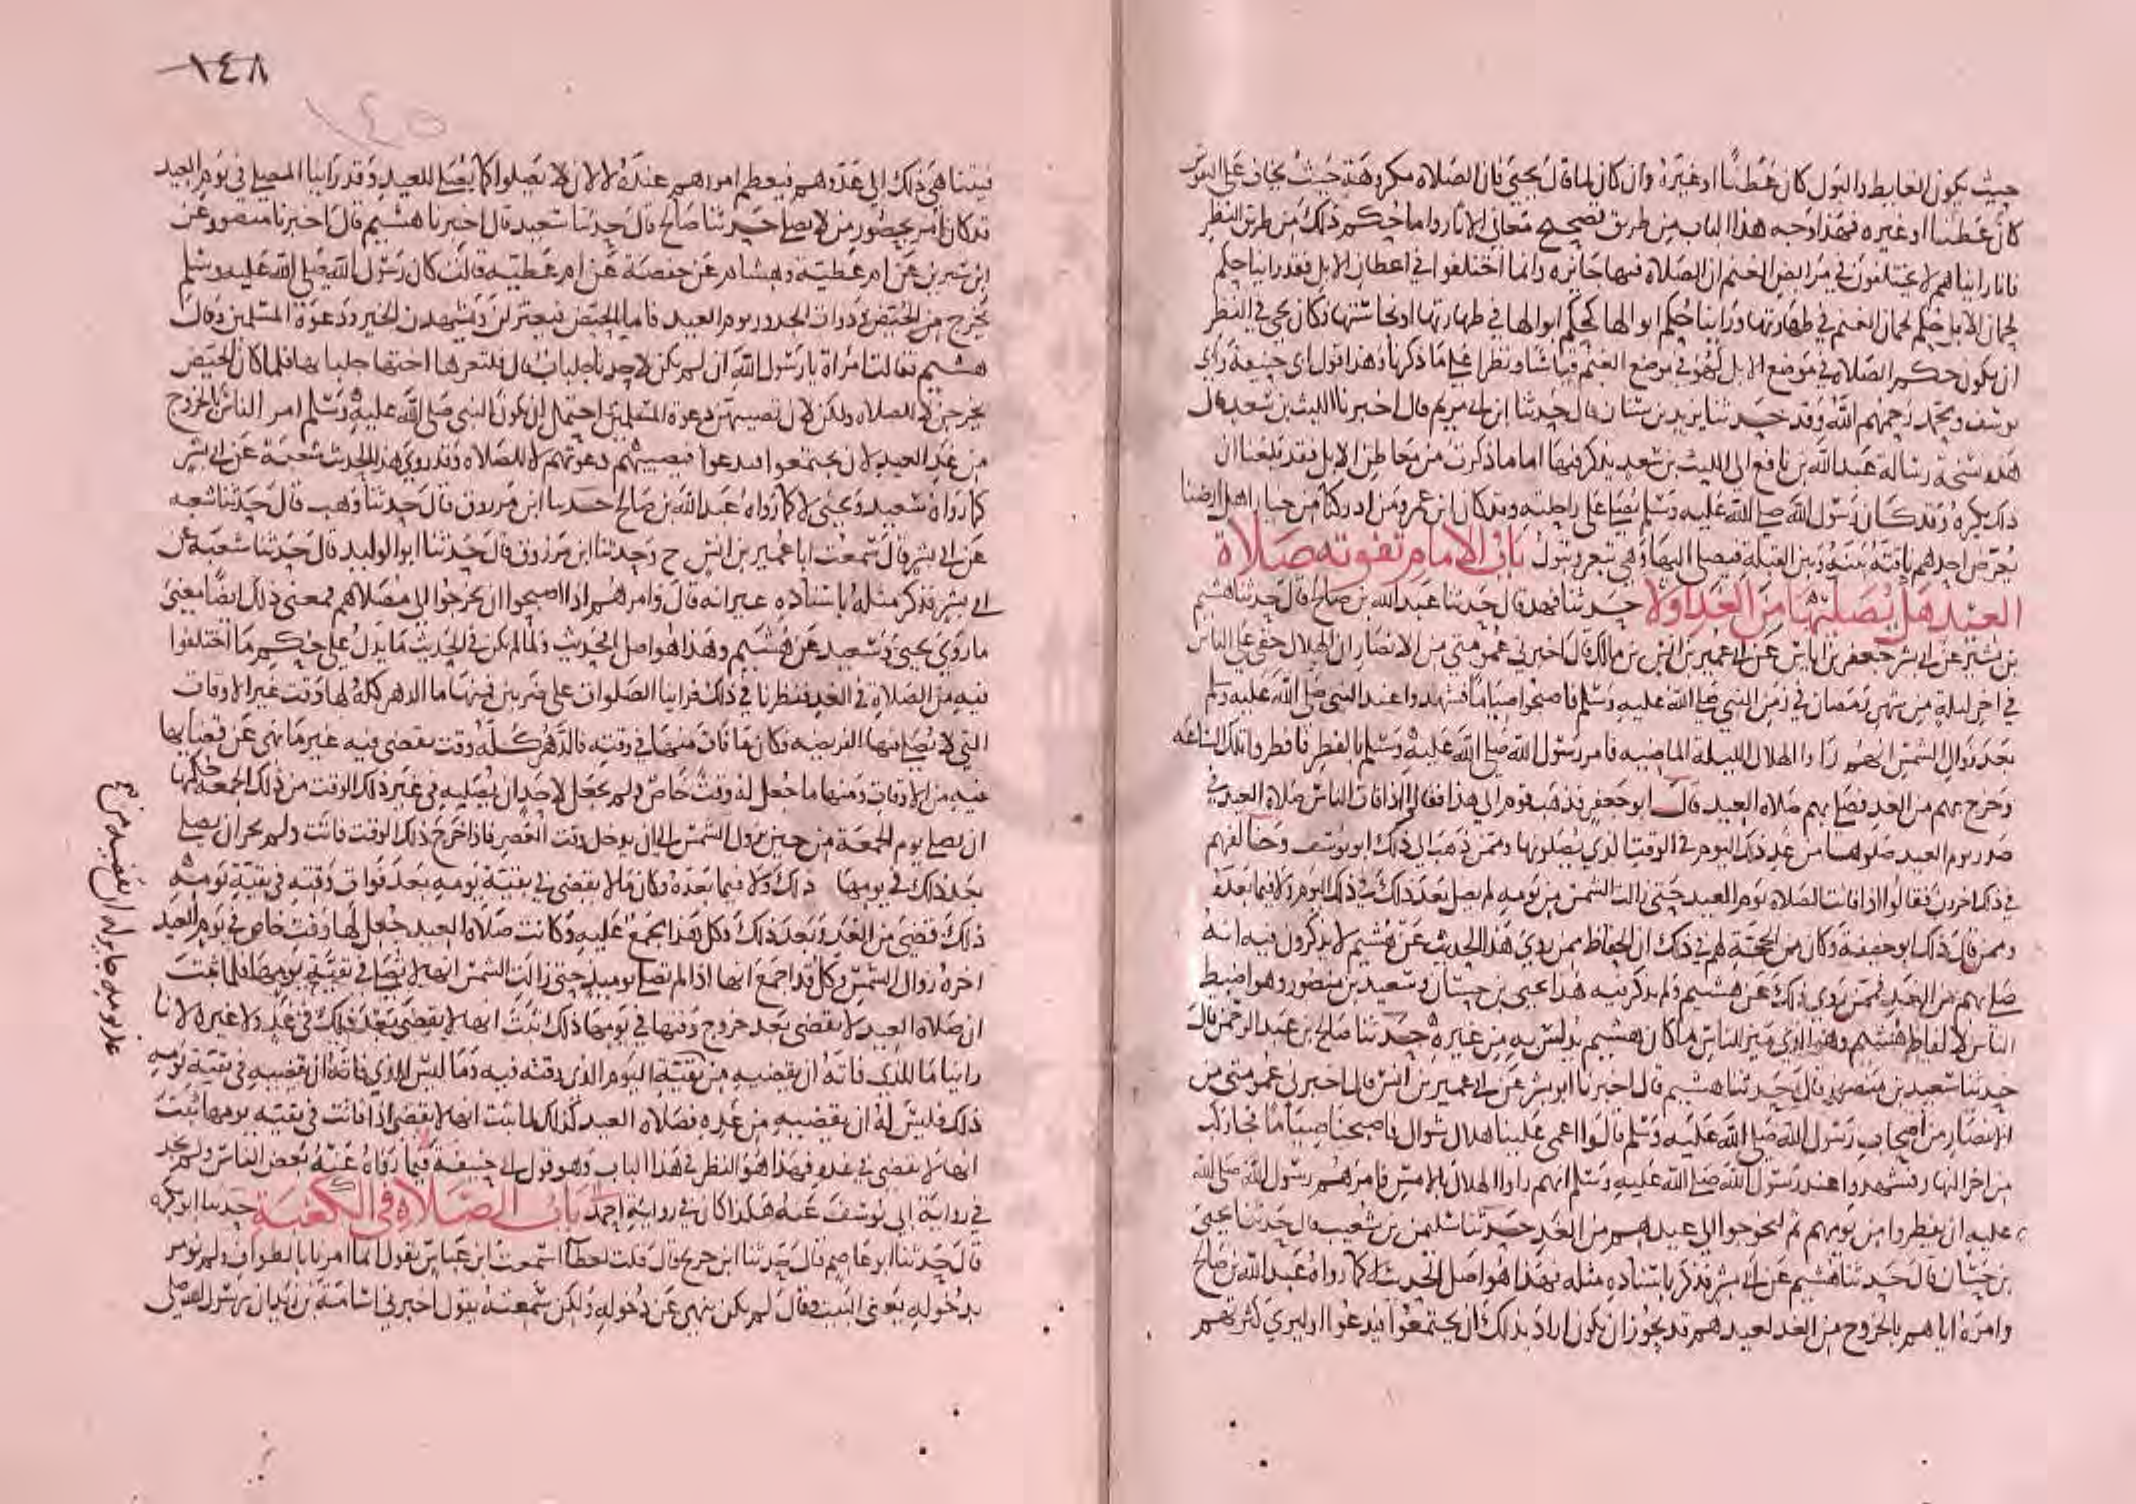 حيث يكون الغايط والبول كان عَطنًا او غيره وان كان لما قال يحيى فان الصلاة مكروهة حيث يخاف على النفوس
كان عطنا او غيره فهذا وجه هذا الباب من طريق تصحيح معاني الاثار واما حكم ذلك من طريق النظر
فانا رايناهم لا يختلفون في مرابض الغنم ان الصلاة فيها جائزة وانما اختلفوا في اعطان الابل فقد راينا حكم
لحمان الابل حكم لحمان الغنم في طهارتها وراينا حكم ابوالها كحكم ابوالها في طهارتها او نجاستها فكان يجي في النظر
ان يكون حكم الصلاة في موضع الابل كهو في موضع الغنم قياسا ونظرا على ما ذكرنا وهذا قول ابي حنيفة وابي
يوسف ومحمد رحمهم الله وقد حدثنا يزيد بن سنان قال حدثنا ابن ابي مريم قال اخبرنا الليث بن سعد قال
هذه نسخة رسالة عبد الله بن نافع الى الليث بن سعد يذكر فيها اما ما ذكرت من معاطن الابل فقد بلغنا ان
ذلك يكره وقد كان رسول الله صلى الله عليه وسلم يصلي على راحلته وقد كان ابن عمر ومن ادركنا من خيار اهل ارضنا
يعرض احدهم ناقته بينه وبين القبلة فيصلي اليها وهي تبعر وتبول باب الامام تفوته صلاة
العيد هل يصليها من الغد او لا حدثنا فهد قال حدثنا عبد الله بن صالح قال حدثنا هشيم
بن بشير عن ابي بشر جعفر بن اياس عن ابي عمير بن انس بن مالك قال اخبرني عمومتي من الانصار ان الهلال خفي على الناس
في اخر ليلة من شهر رمضان في زمن النبي صلى الله عليه وسلم فاصبحوا صياما فشهدوا عند النبي صلى الله عليه وسلم
بعد زوال الشمس انهم راوا الهلال الليلة الماضيه فامر رسول الله صلى الله عليه وسلم بالفطر فافطروا تلك الساعة
وخرج بهم من الغد فصلى بهم صلاة العيد قال ابو جعفر فذهب قوم الى هذا فقالوا اذا فات الناس صلاة العيد في
صدر يوم العيد صلوها من غد ذلك اليوم في الوقت الذي يصلونها وممن ذهب الى ذلك ابو يوسف وخالفهم
في ذلك اخرون فقالوا اذا فاتت الصلاة يوم العيد حتى زالت الشمس من يومه لم يصل بعد ذلك في ذلك اليوم ولا فيما بعده
وممن قال ذلك ابو حنيفة وكان من الحجة لهم في ذلك ان الحفاظ ممن روى هذا الحديث عن هشيم لا يذكرون فيه انه
صلى بهم من الغد فممن روى ذلك عن هشيم ولم يذكر فيه هذا يحيى بن حسان وسعيد بن منصور وهو اضبط
الناس لالفاظ هشيم وهو الذي ميز للناس ما كان هشيم يدلس به من غيره حدثنا صالح بن عبد الرحمن قال
حدثنا سعيد بن منصور قال حدثنا هشيم قال اخبرنا ابو بشر عن ابي عمير بن انس قال اخبرني عمومتي من
الانصار من اصحاب رسول الله صلى الله عليه وسلم قالوا اغمي علينا هلال شوال فاصبحنا صياما فجا ركب
من اخر النهار فشهدوا عند رسول الله صلى الله عليه وسلم انهم راوا الهلال بالامس فامرهم رسول الله صلى الله
عليه ان يفطروا من يومهم ثم ليخرجوا الى عيدهم من الغد حدثنا سليمن بن شعيب قال حدثنا يحيى
بن حسان قال حدثنا هشيم عن ابي بشر فذكر باسناده مثله فهذا هو اصل الحديث لا كما رواه عبد الله بن صالح
وامره اياهم بالخروج من الغد لعيدهم قد يجوز ان يكون اراد بذلك ان يجتمعوا فيدعوا او ليرى كثرتهم
١٤٨
١٤٥
فيتناهى ذلك الى عدوهم فيعظم امرهم عنده لا لان لا يصلوا كما يصلى للعيد وقد راينا المصلي في يوم العيد
قد كان امر بحضور من لا يصلي حدثنا صالح قال حدثنا سعيد قال اخبرنا هشيم قال اخبرنا منصور عن
ابن سيرين عن ام عطية وهشام عن حفصة عن ام عطية قالت كان رسول الله صلى الله عليه وسلم
يخرج من الحيض وذوات الخدور يوم العيد فاما الحيض فيعتزلن ويشهدن الخير ودعوة المسلمين وقال
هشيم فقالت امراة يا رسول الله ان لم يكن لاحدنا جلباب قال فلتعرها اختها جلبابها فلما كان الحيض
يخرجن لا للصلاة ولكن لان تصيبهن دعوة المسلمين احتمل ان يكون النبي صلى الله عليه وسلم امر الناس بالخروج
من غد العيد لان يجتمعوا فيدعوا فيصيبهم دعوتهم لا للصلاة وقد روى هذا الحديث شعبة عن ابي بشر
كما رواه سعيد ويحيى لا كما رواه عبد الله بن صالح حدثنا ابن مرزوق قال حدثنا وهب قال حدثنا شعبه
عن ابي بشر قال سمعت ابا عمير بن انس ح وحدثنا ابن مرزوق قال حدثنا ابو الوليد قال حدثنا شعبة عن
ابي بشر فذكر مثله باسناده غير انه قال وامرهم اذا اصبحوا ان يخرجوا الى مصلاهم فمعنى ذلك ايضا معنى
ما روى يحيى وسعيد عن هشيم وهذا هو اصل الحديث ولما لم يكن في الحديث ما يدل على حكم ما اختلفوا
فيه من الصلاة في الغد فنظرنا في ذلك فراينا الصلوات على ضربين فمنها ما الدهر كله لها وقت غير الاوقات
التي لا يصلى فيها الفريضه وكان ما فات منها في وقته فالدهر كله وقت يقضى فيه غير ما نهي عن قضايها
فيه من الاوقات ومنها ما جعل له وقت خاص ولم يجعل لاحد ان يصليه في غير ذلك الوقت من ذلك الجمعة حكمها
ان يصلى يوم الجمعة من حين تزول الشمس الى ان يدخل وقت العصر فاذا خرج ذلك الوقت فاتت ولم يجز ان يصلى
بعد ذلك في يومها ذلك ولا فيما بعده وكان ما لا يقضى في بقية يومه بعد فوات وقته في بقية يومه
ذلك قضي من الغد وبعد ذلك وكل هذا مجمع عليه وكانت صلاة العيد جعل لها وقت خاص في يوم العيد
اخره زوال الشمس وكل قد اجمع انها اذا لم تصل يوميذ حتى زالت الشمس انها لا تصلى في بقية يومها فلما ثبت
ان صلاة العيد لا تقضى بعد خروج وقتها في يومها ذلك ثبت انها لا تقضى بعد ذلك في غد ولا غيره لانا
راينا ما للذي فاته ان يقضيه من بقية اليوم الذي وقته فيه وما ليس للذي فاته ان يقضيه في بقية يومه
ذلك فليس له ان يقضيه من غده فصلاة العيد كذلك لما ثبت انها لا تقضى اذا فاتت في بقية يومها ثبت
انها لا تقضى في غده فهذا هو النظر في هذا الباب وهو قول ابي حنيفة فيما رواه عنه بعض الناس ولم نجده
في رواية ابي يوسف عنه هكذا كان في رواية احمد باب الصلاة في الكعبة حدثنا ابو بكره
قال حدثنا ابو عاصم قال حدثنا ابن جريج قال قلت لعطا اسمعت ابن عباس يقول انما امرنا بالطواف ولم نومر
بدخوله يعني البيت فقال لم يكن ينهى عن دخوله ولكن سمعته يقول اخبرني اسامة بن زيد ان رسول الله صلى